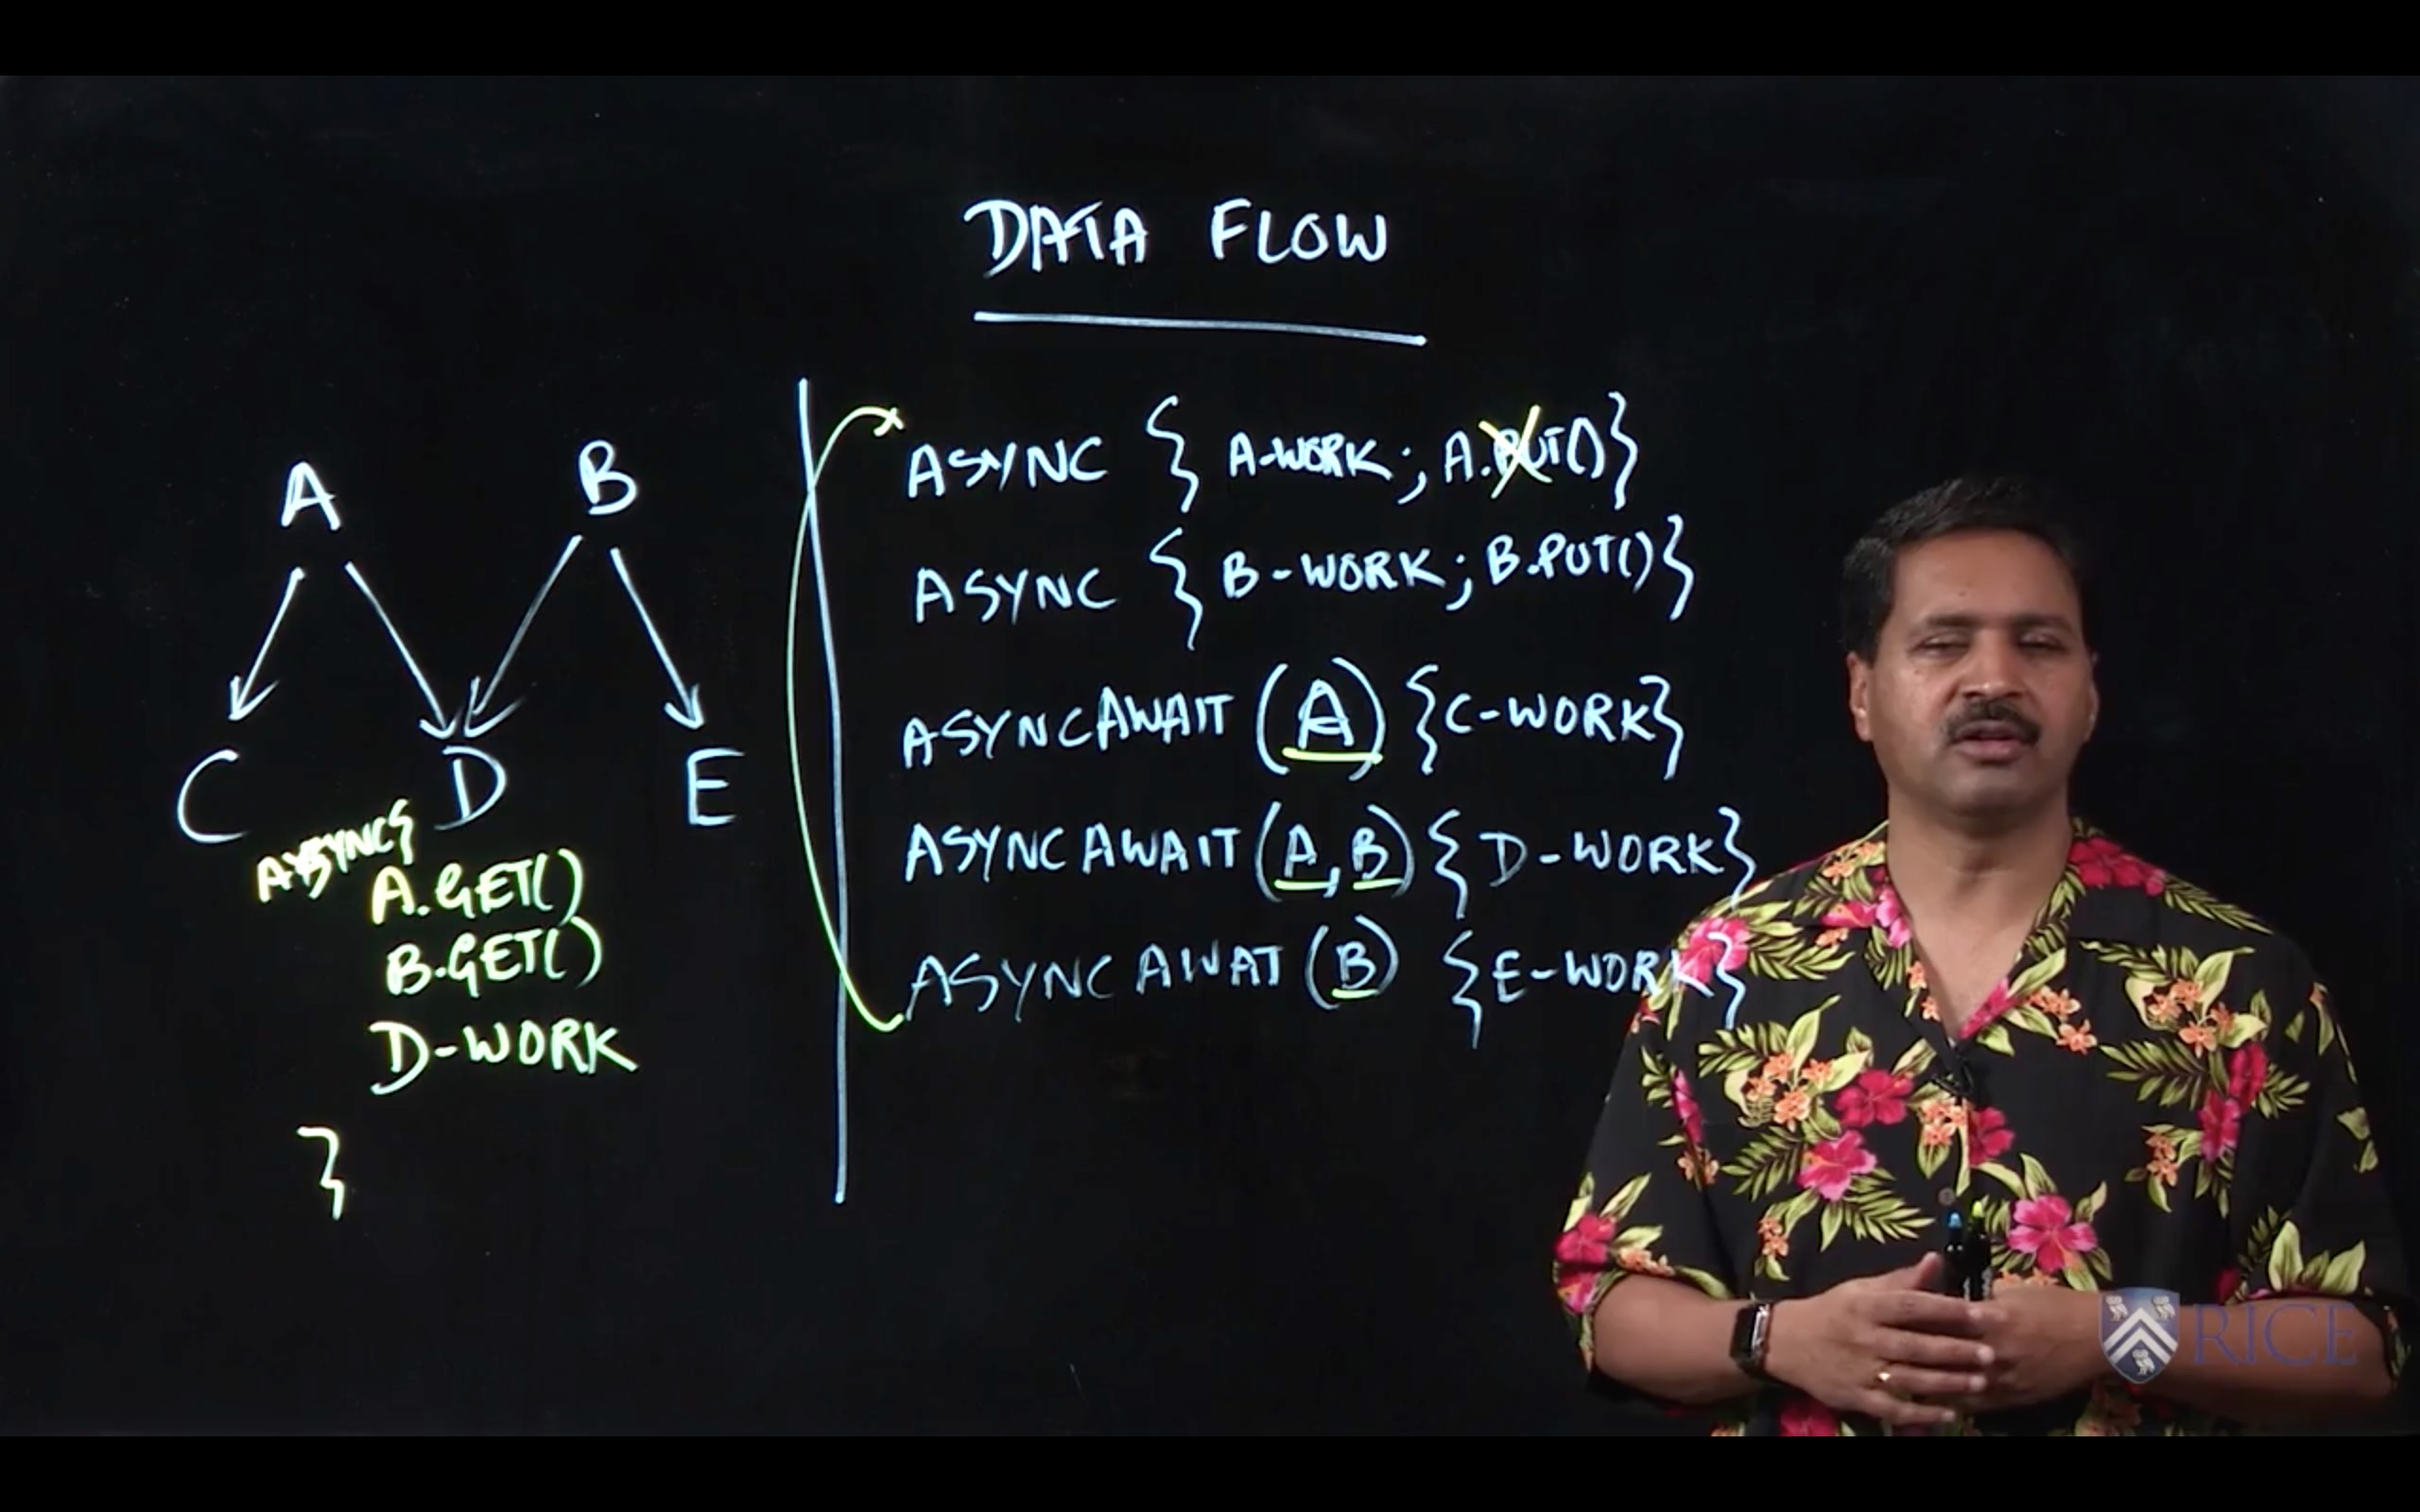 DATA FLOW
A B
C D E
ASYNC {
A.GET()
B.GET()
D-WORK
}
ASYNC { A-WORK; A.PUT() }
ASYNC { B-WORK; B.PUT() }
ASYNCAWAIT (A) { C-WORK }
ASYNCAWAIT (A, B) { D-WORK }
ASYNCAWAT (B) { E-WORK }
RICE